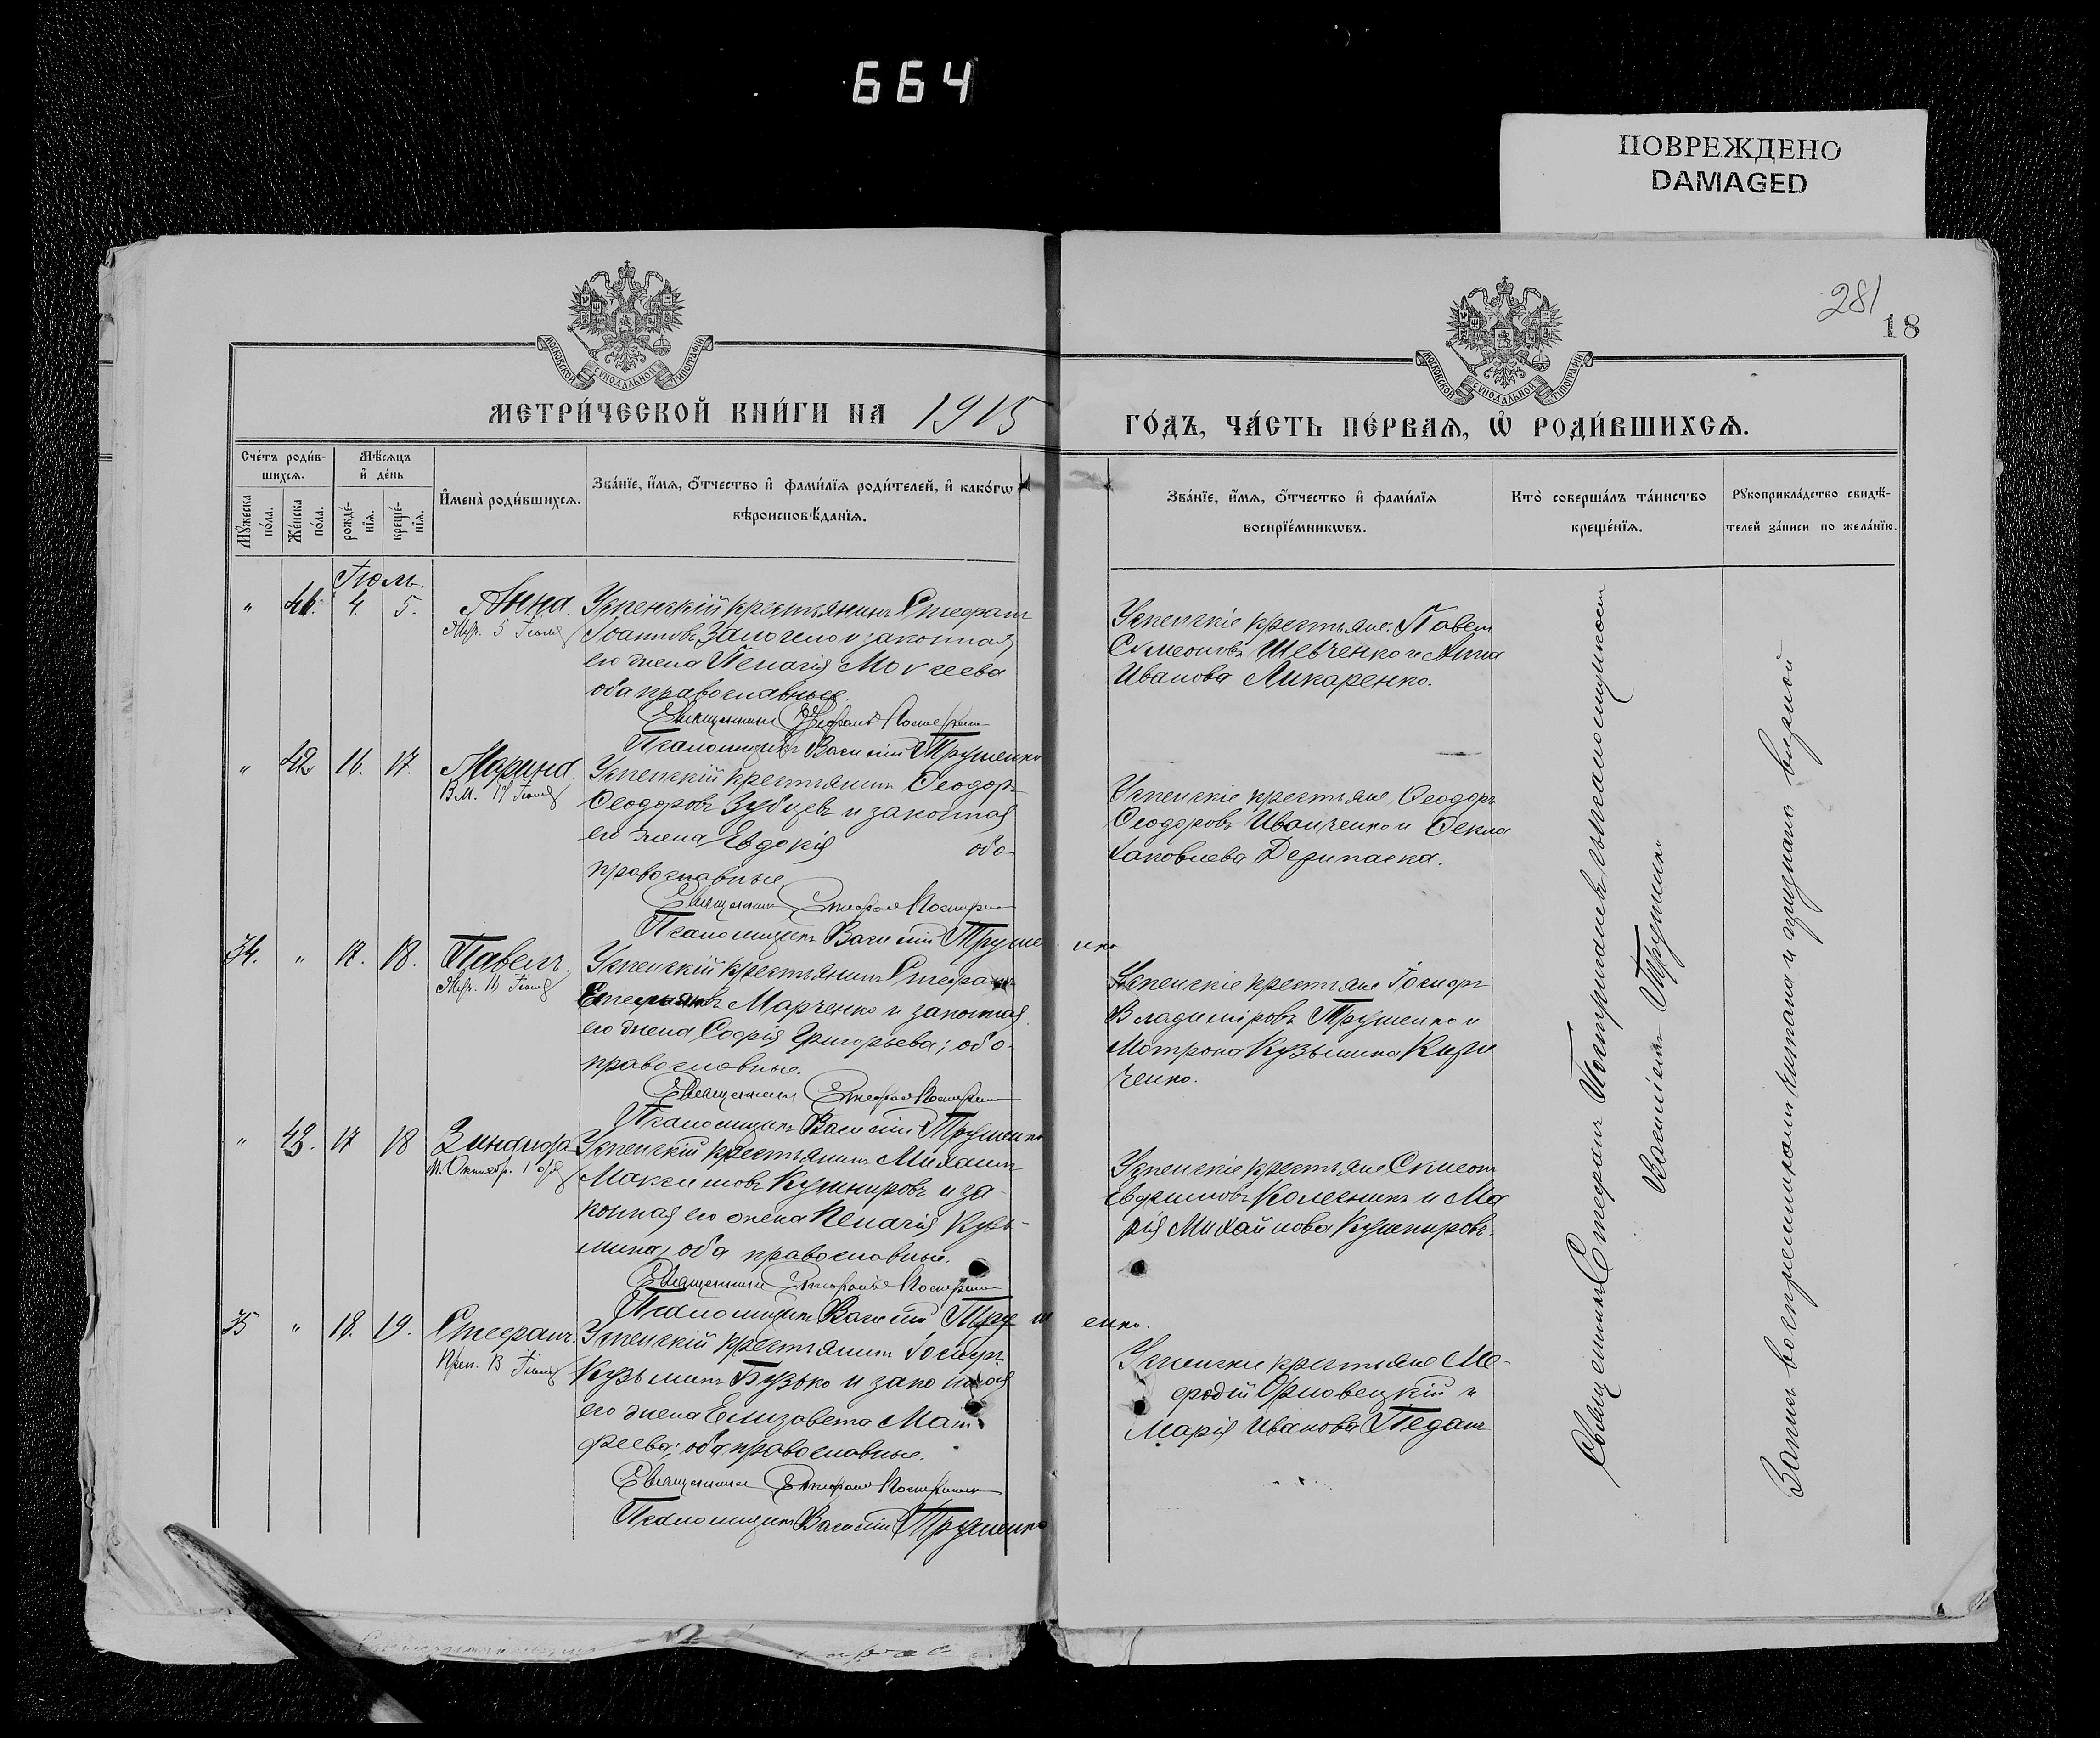 664
ПОВРЕЖДЕНО
DAMAGED
281
18
МОСКОВСКОЙ СУНОДАЛЬНОЙ ТИПОГРАФІИ
МОСКОВСКОЙ СУНОДАЛЬНОЙ ТИПОГРАФІИ
МЕТРИ́ЧЕСКОЙ КНИ́ГИ НА 1915
ГО́ДЪ, ЧА́СТЬ ПЕ́РВАЯ, Ѡ҆ РОДИ́ВШИХСѦ.
Сче́тъ роди́в-
шихсѧ.
Мꙋ́жеска по́ла.
Же́нска по́ла.
Мѣ́сѧцъ
и҆ де́нь
рожде́-
нїѧ.
креще́-
нїѧ.
И҆мена̀ роди́вшихсѧ.
Зва́нїе, и҆́мѧ, ѻ҆́тчество и҆ фами́лїѧ роди́телей, и҆ како́гѡ
вѣроисповѣ́данїѧ.
Зва́нїе, и҆́мѧ, ѻ҆́тчество и҆ фами́лїѧ
воспрїе́мникѡвъ.
Кто̀ соверша́лъ та́инство
креще́нїѧ.
Рꙋкоприкла́дство свидѣ́-
телей за́писи по жела́нїю.
Іюль.
" 41. 4. 5. Анна.
Мчр. 5 Іюля
Успенскій крестьянинъ Стефанъ
Іоанновъ и законная
его жена Пелагія Мочсеева
оба православные.
Священникъ Стефанъ
Псаломщикъ Василій Трушенко
Успенскіе крестьяне: Павелъ
Сѵмеоновъ Шевченко и Анна
Иванова Ликаренко.
" 42 16. 17. Марина.
В.М. 17 Іюля
Успенскій крестьянинъ Ѳеодоръ
Ѳеодоровъ Зубцевъ и законная
его жена Евдокія оба
православные
Священникъ Стефанъ
Псаломщикъ Василій Трушенко
Успенскіе крестьяне Ѳеодоръ
Ѳеодоровъ Иванченко и Ѳекла
Яковлева Дерипаска.
34. " 17. 18. Павелъ.
Мчр. 16 Іюля
Успенскій крестьянинъ Стефанъ
Марченко и законная
его жена Софія Григорьева; оба
православные.
Священникъ Стефанъ
Псаломщикъ Василій Трушенко
Успенскіе крестьяне Іосифъ
Владиміровъ Трушенко и
Матрона Кузьмина Кири
ченко.
" 43. 17 18 Зинаида
М. Октябр. 11 дня
Успенскій крестьянинъ Михаилъ
Максимовъ Кушнировъ и за-
конная его жена Пелагія Кузь-
мина; оба православные.
Священникъ Стефанъ
Псаломщикъ Василій Трушенко.
Успенскіе крестьяне Симеонъ
Ефимовъ Колесникъ и Ма
рія Михайлова Кушнировъ.
35 " 18. 19. Стефанъ.
Преп. 13 Іюля
Успенскій крестьянинъ Іосифъ
Кузьминъ Бузько и законная
его жена Елизавета Мат-
феева; оба православные.
Священникъ Стефанъ
Псаломщикъ Василій Трушенко
Успенскіе крестьяне Ме-
фодій Орловецкій и
Марія Иванова Педанъ
Священникъ Стефанъ съ псаломщикомъ
Василіемъ Трушенко